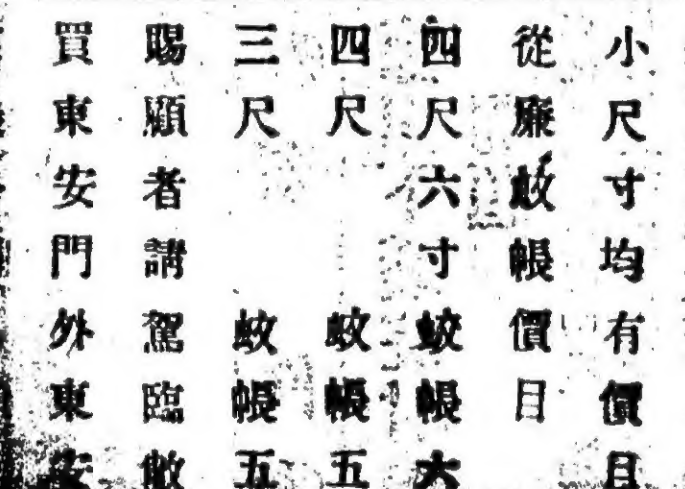 小尺寸均有價目
從廉蚊帳價目
四尺六寸蚊帳六
四尺蚊帳五
三尺蚊帳五
賜顧者請駕臨敝
買東安門外東安